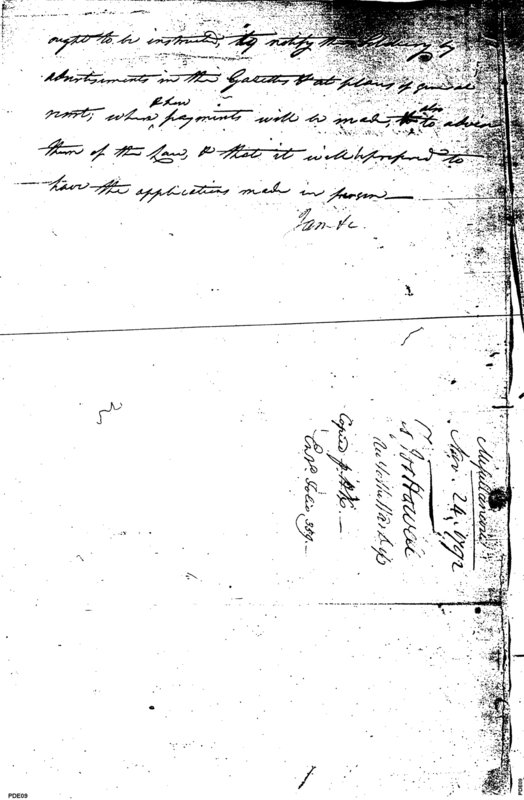 ought to be instructed, to notify the soldiery by
advertisements in the Gazettes & at places of general
resort, when & how payments will be made, also to advise
them of the law, & that it will be proposed to
have the applications made in person —
I am &c.
Miscellaneous
Nov. 24. 1792
to
Copied p.
folio 359.
PDE09